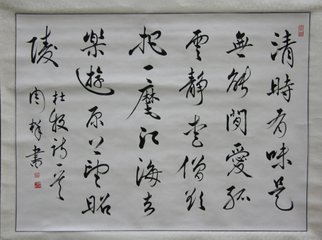 清時有味是
無能閒愛孤
雲靜愛僧欲
把一麾江海去
樂遊原上望昭
陵
杜牧詩一首
周 書